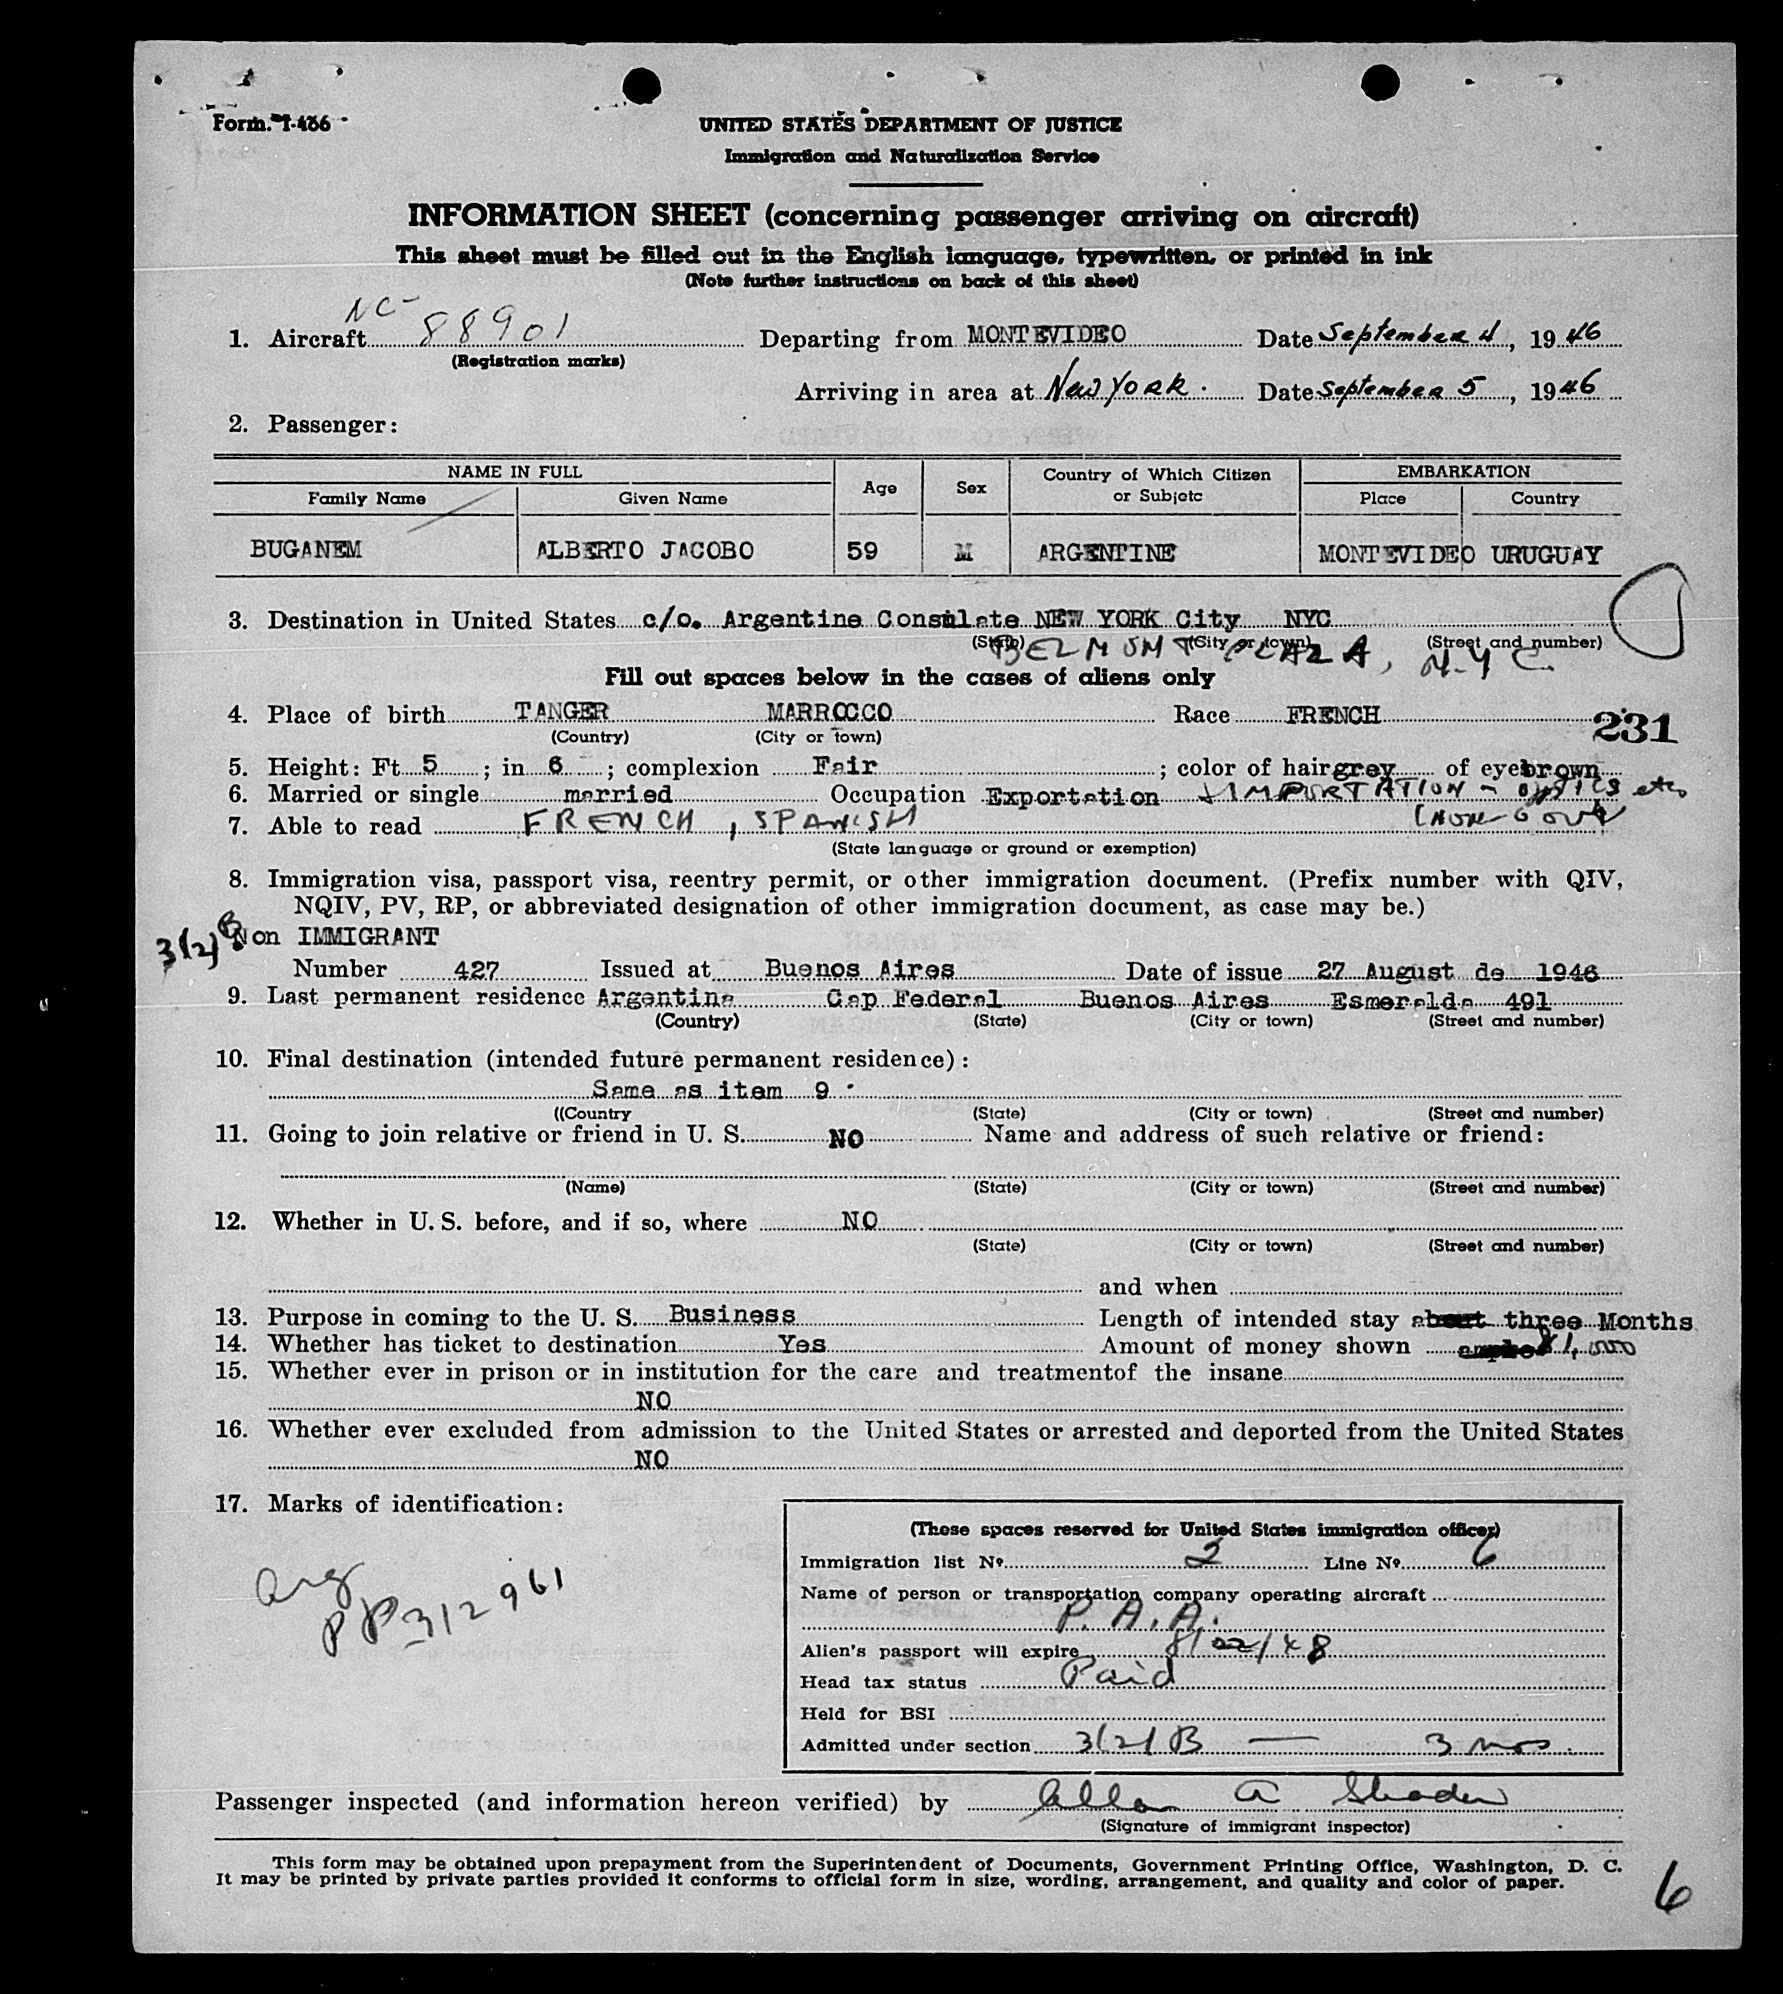 Form. I-466
UNITED STATES DEPARTMENT OF JUSTICE
Immigration and Naturalization Service
INFORMATION SHEET (concerning passenger arriving on aircraft)
This sheet must be filled out in the English language, typewritten, or printed in ink
(Note further instructions on back of this sheet)
1. Aircraft NC- 88901 Departing from MONTEVIDEO Date September 4, 1946
(Registration marks)
Arriving in area at New York. Date September 5, 1946
2. Passenger:
NAME IN FULL Age Sex Country of Which Citizen or Subjetc EMBARKATION
Family Name Given Name Place Country
BUGANEM ALBERTO JACOBO 59 M ARGENTINE MONTEVIDEO URUGUAY
3. Destination in United States c/o. Argentine Consulate NEW YORK City NYC
(State) (City or town) (Street and number)
BELMONT PLAZA, N.Y.C.
Fill out spaces below in the cases of aliens only
4. Place of birth TANGER MARROCCO Race FRENCH
(Country) (City or town)
231
5. Height: Ft 5 ; in 6 ; complexion Fair ; color of hair grey of eye brown
6. Married or single married Occupation Exportation + IMPORTATION - OPTICS etc
7. Able to read FRENCH, SPANISH (NON-Govt
(State language or ground or exemption)
8. Immigration visa, passport visa, reentry permit, or other immigration document. (Prefix number with QIV,
NQIV, PV, RP, or abbreviated designation of other immigration document, as case may be.)
3(2)B Non IMMIGRANT
Number 427 Issued at Buenos Aires Date of issue 27 August de 1946
9. Last permanent residence Argentina Cap Federal Buenos Aires Esmeralda 491
(Country) (State) (City or town) (Street and number)
10. Final destination (intended future permanent residence):
Same as item 9
((Country (State) (City or town) (Street and number)
11. Going to join relative or friend in U. S. NO Name and address of such relative or friend:
(Name) (State) (City or town) (Street and number)
12. Whether in U. S. before, and if so, where NO
(State) (City or town) (Street and number)
and when
13. Purpose in coming to the U. S. Business Length of intended stay about three Months
14. Whether has ticket to destination Yes Amount of money shown $1,000
15. Whether ever in prison or in institution for the care and treatmentof the insane
NO
16. Whether ever excluded from admission to the United States or arrested and deported from the United States
NO
17. Marks of identification:
Arg
PP 312961
(These spaces reserved for United States immigration officer)
Immigration list Nº 2 Line Nº 6
Name of person or transportation company operating aircraft
P. A. A.
Alien's passport will expire 8/22/48
Head tax status Paid
Held for BSI
Admitted under section 3(2)B — 3 mos.
Passenger inspected (and information hereon verified) by Allan A
(Signature of immigrant inspector)
This form may be obtained upon prepayment from the Superintendent of Documents, Government Printing Office, Washington, D. C.
It may be printed by private parties provided it conforms to official form in size, wording, arrangement, and quality and color of paper.
6